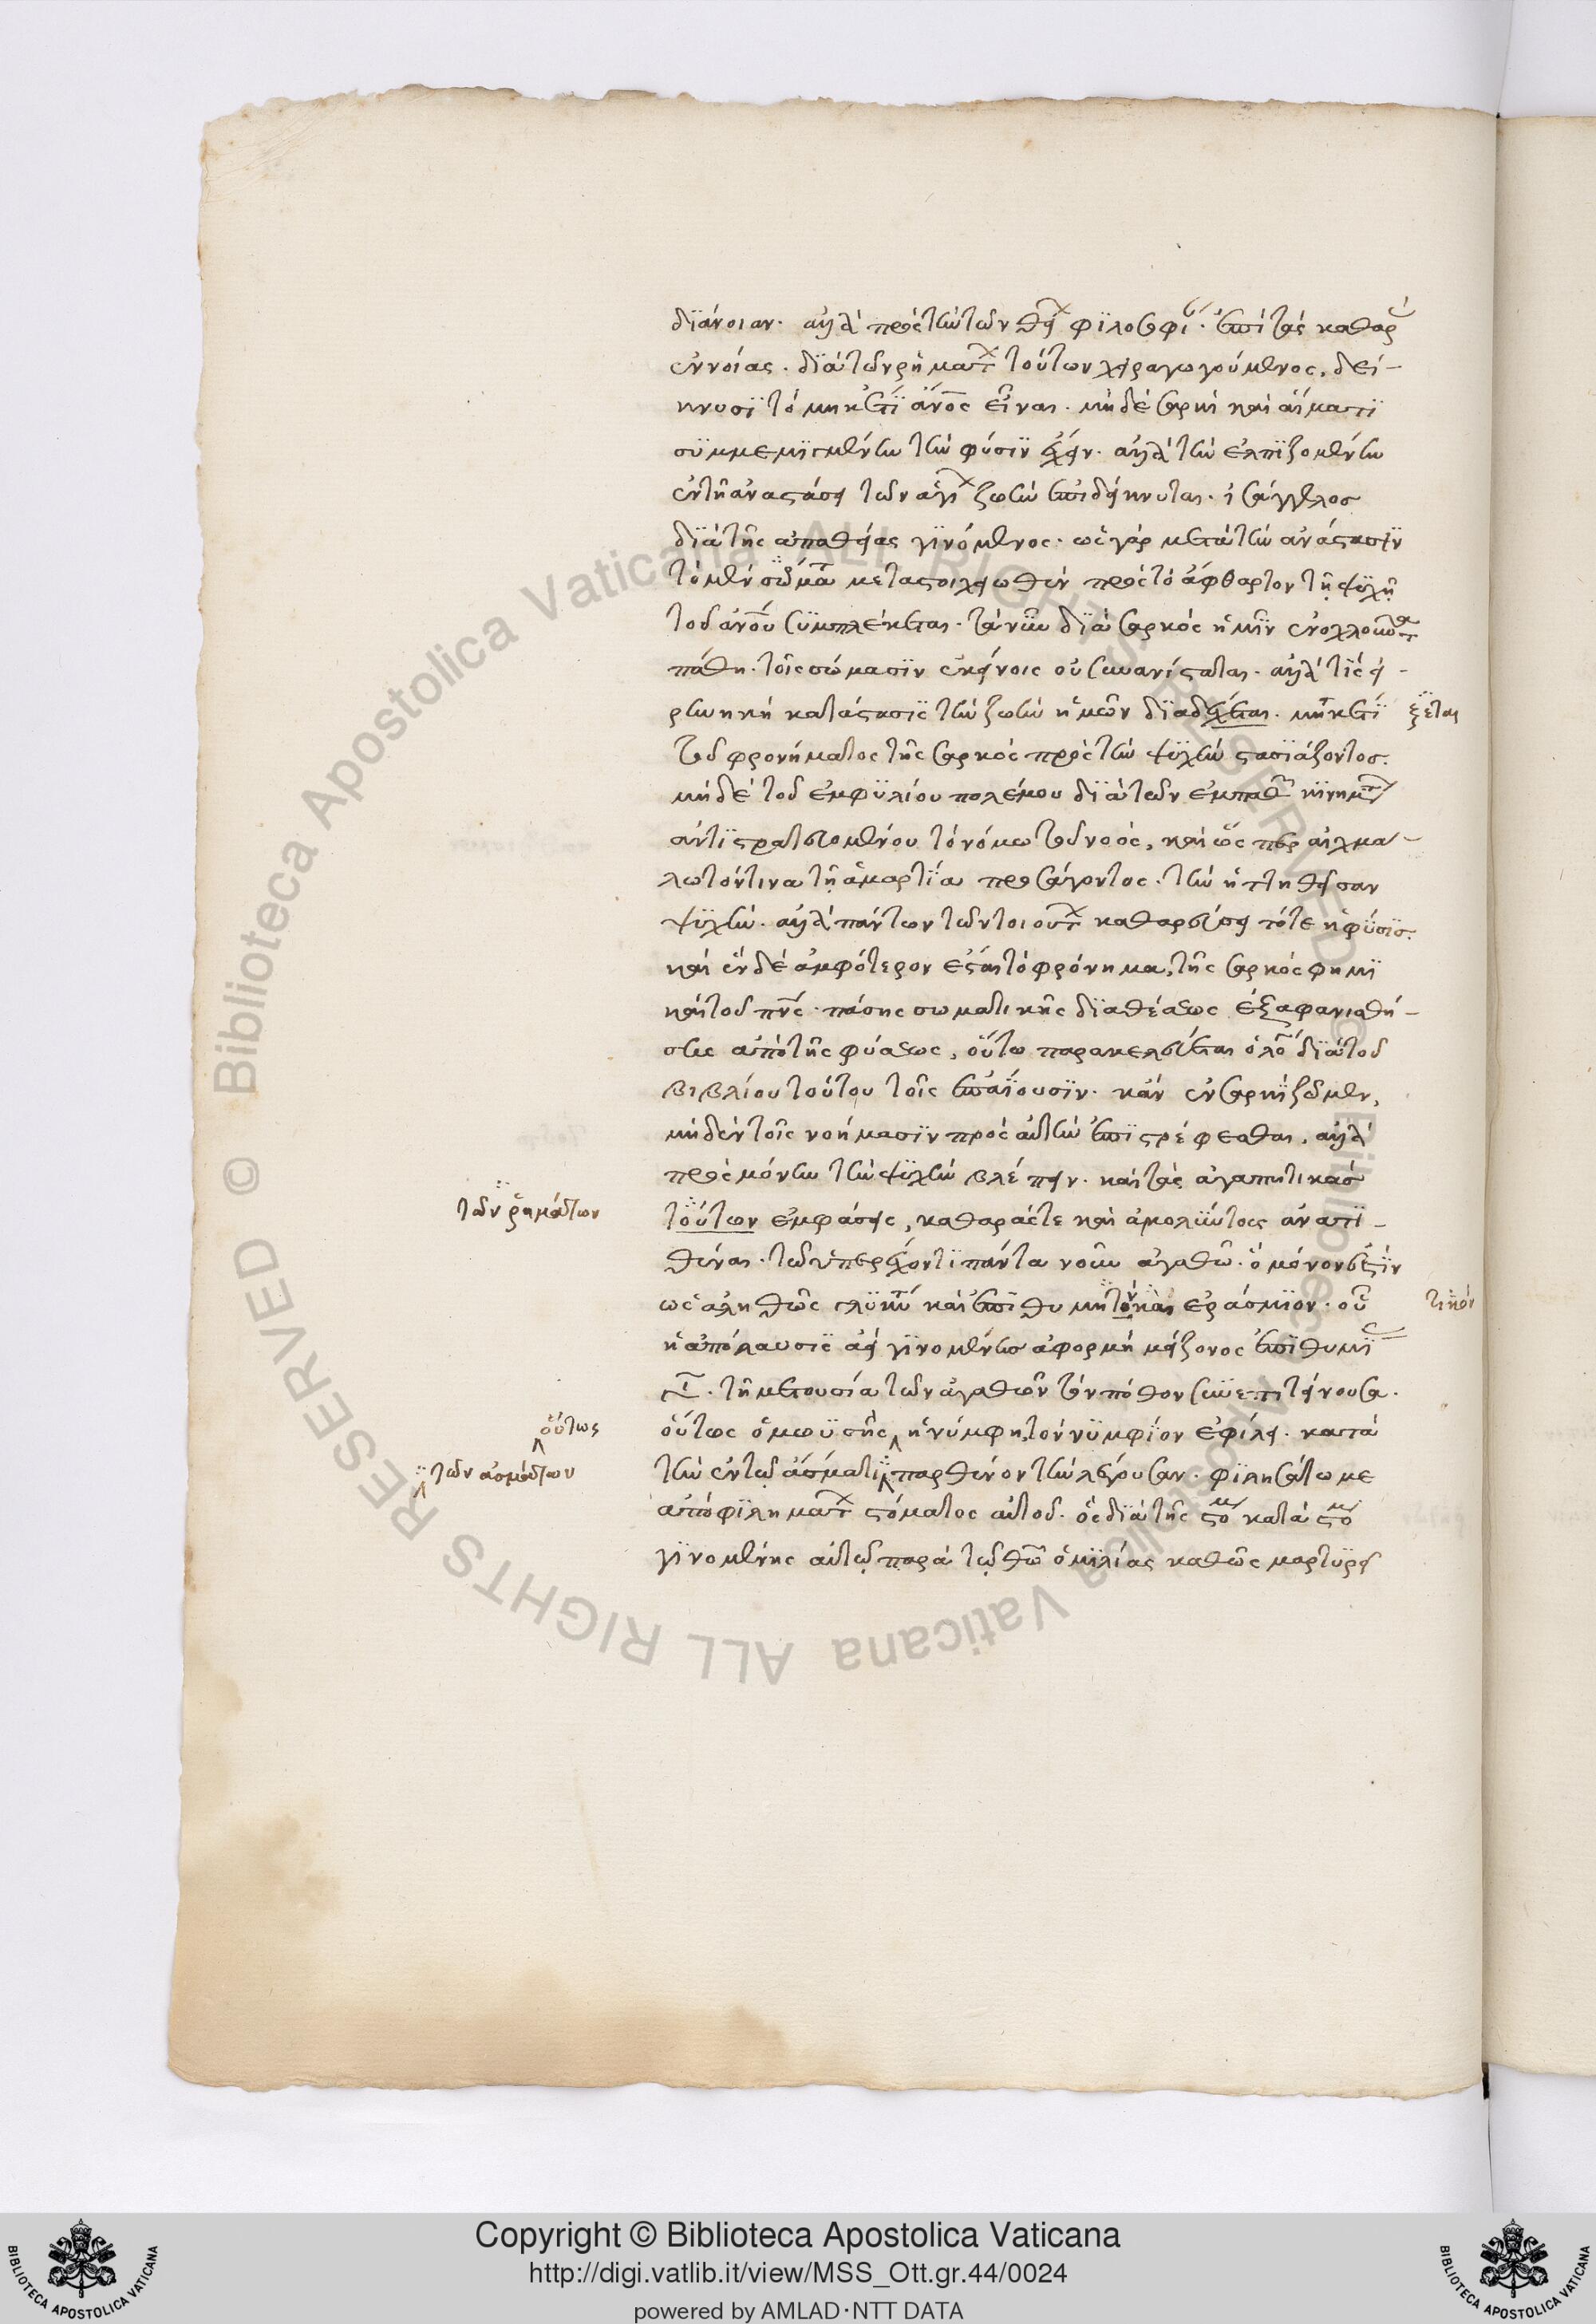 διάνοιαν. ἀλλὰ πρὸς τὴν τῶν θεί φιλοσοφί. ἐπὶ τὰς καθαρὰς
ἐννοίας. διὰ τῶν ῥημάτ τούτων χειραγωγούμενος, δεί-
κνυσι τὸ μηκέτι ἄνος εἶναι. μηδὲ σαρκὶ καὶ αἵματι
συμμεμιγμένην τὴν φύσιν ἔχειν. ἀλλὰ τὴν ἐλπιζομένην
ἐν τῇ ἀναστάσει τῶν ἁγί ζωὴν ἐπιδείκνυται. ἰσάγγελος
διὰ τῆς ἀπαθείας γινόμενος. ὡς γὰρ μετὰ τὴν ἀνάστασιν
τὸ μὲν σῶμα μεταστοιχειωθὲν πρὸς τὸ ἄφθαρτον τῇ ψυχῇ
τοῦ ἀνου συμπλέκεται. τὰ νῦν διὰ σαρκὸς ἡμῖν ἐνοχλοῦντα
πάθη. τοῖς σώμασιν ἐκείνοις οὐ συνανίσταται. ἀλλὰ τὶς εἰ-
ρηνικὴ κατάστασις τὴν ζωὴν ἡμῶν διαδέχεται. μηκέτι
ξεται
τοῦ φρονήματος τῆς σαρκὸς πρὸς τὴν ψυχὴν στασιάζοντος.
μηδὲ τοῦ ἐμφυλίου πολέμου διὰ τῶν ἐμπαθ κινημτ
ἀντιστρατευομένου τὸ νόμω τοῦ νοὸς, καὶ ὥς περ αἰχμα-
λωτόν τινα τῇ ἁμαρτία προσάγοντος. τὴν ἡττηθεῖσαν
ψυχὴν. ἀλλὰ πάντων τῶν τοιούτ καθαρεύσει τότε ἡ φύσις.
καὶ ἓν δὲ ἀμφότερον ἔσται τὸ φρόνημα, τῆς σαρκός φημι
καὶ τοῦ πνς. πάσης σωματικῆς διαθέσεως ἐξαφανισθή-
σης ἀπὸ τῆς φύσεως, οὕτω παρακελεύεται ὁ λο διὰ τοῦ
βιβλίου τούτου τοῖς ἐπαΐουσιν. κἂν ἐν σαρκὶ ζῶμεν,
μηδὲν τοῖς νοήμασιν πρὸς αὐτὴν ἐπιστρέφεσθαι, ἀλλὰ
πρὸς μόνην τὴν ψυχὴν βλέπειν. καὶ τὰς ἀγαπητικὰσ
τῶν ῥημάτων
τούτων ἐμφάσεις, καθαράς τε καὶ ἀμολύντους ἀνατι-
θέναι. τῶ ὑπερέχοντι πάντα νοῦν ἀγαθῶ. ὃ μόνον ἐστὶν
ὡς ἀληθῶς γλυκύ καὶ ἐπιθυμητὸν καὶ ἐράσμιον. οὗ
τικόν
ἡ ἀπόλαυσις ἀεὶ γινομένη ἀφορμὴ μείζονος ἐπιθυμί
τ. τῇ μετουσία τῶν ἀγαθῶν τὸν πόθον συνεπιτείνουσα.
οὕτως
οὕτως ὁ μωϋσῆς, ἡ νύμφη, τὸν νυμφίον ἐφίλει. κατὰ
τῶν ἀσμάτων
τὴν ἐν τῷ ἄσματι παρθένον τὴν λέγουσαν. φιλησάτω με
ἀπὸ φιλημάτ στόματος αὐτοῦ. ὃς διὰ τῆς στο κατὰ στο
γινομένης αὐτῷ παρὰ τῷ θῶ ὁμιλίας καθὼς μαρτυρεῖ
Copyright © Biblioteca Apostolica Vaticana
http://digi.vatlib.it/view/MSS_Ott.gr.44/0024
powered by AMLAD·NTT DATA